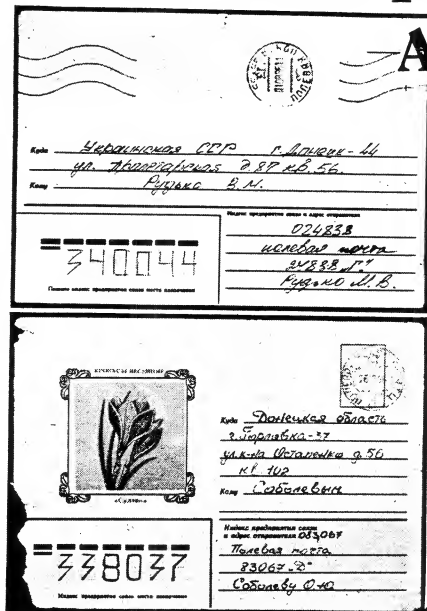 А
Куда Украинская ССР г. Донецк-44
ул. Пролетарская д. 87 кв. 56.
Кому Рудько В.М.
Индекс предприятия связи и адрес отправителя
024838
полевая почта
24838 „Г"
Рудько М.В.
340044
Пишите индекс предприятия связи места назначения
«Сувлян»
Куда Донецкая область
г. Горловка-37
ул. к-на Остапенко д. 56
кв. 102
Кому Соболевым
Индекс предприятия связи
и адрес отправителя 083067
Полевая почта
83067 „Д"
Соболеву О.Ю
338037
Индекс предприятия связи места назначения